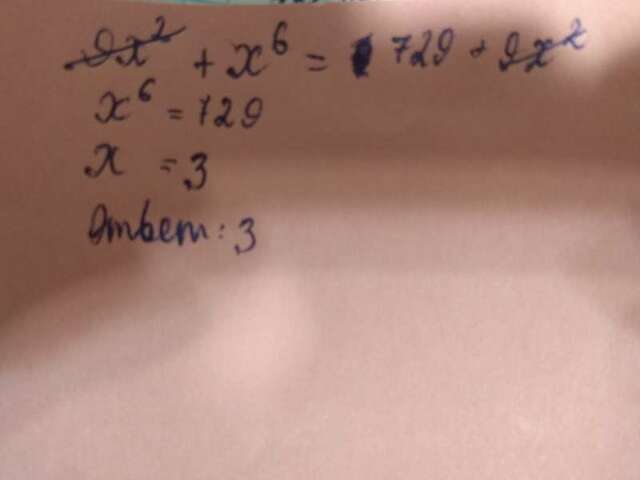 9x² + x⁶ = 729 + 9x²
x⁶ = 729
x = 3
Ответ: 3